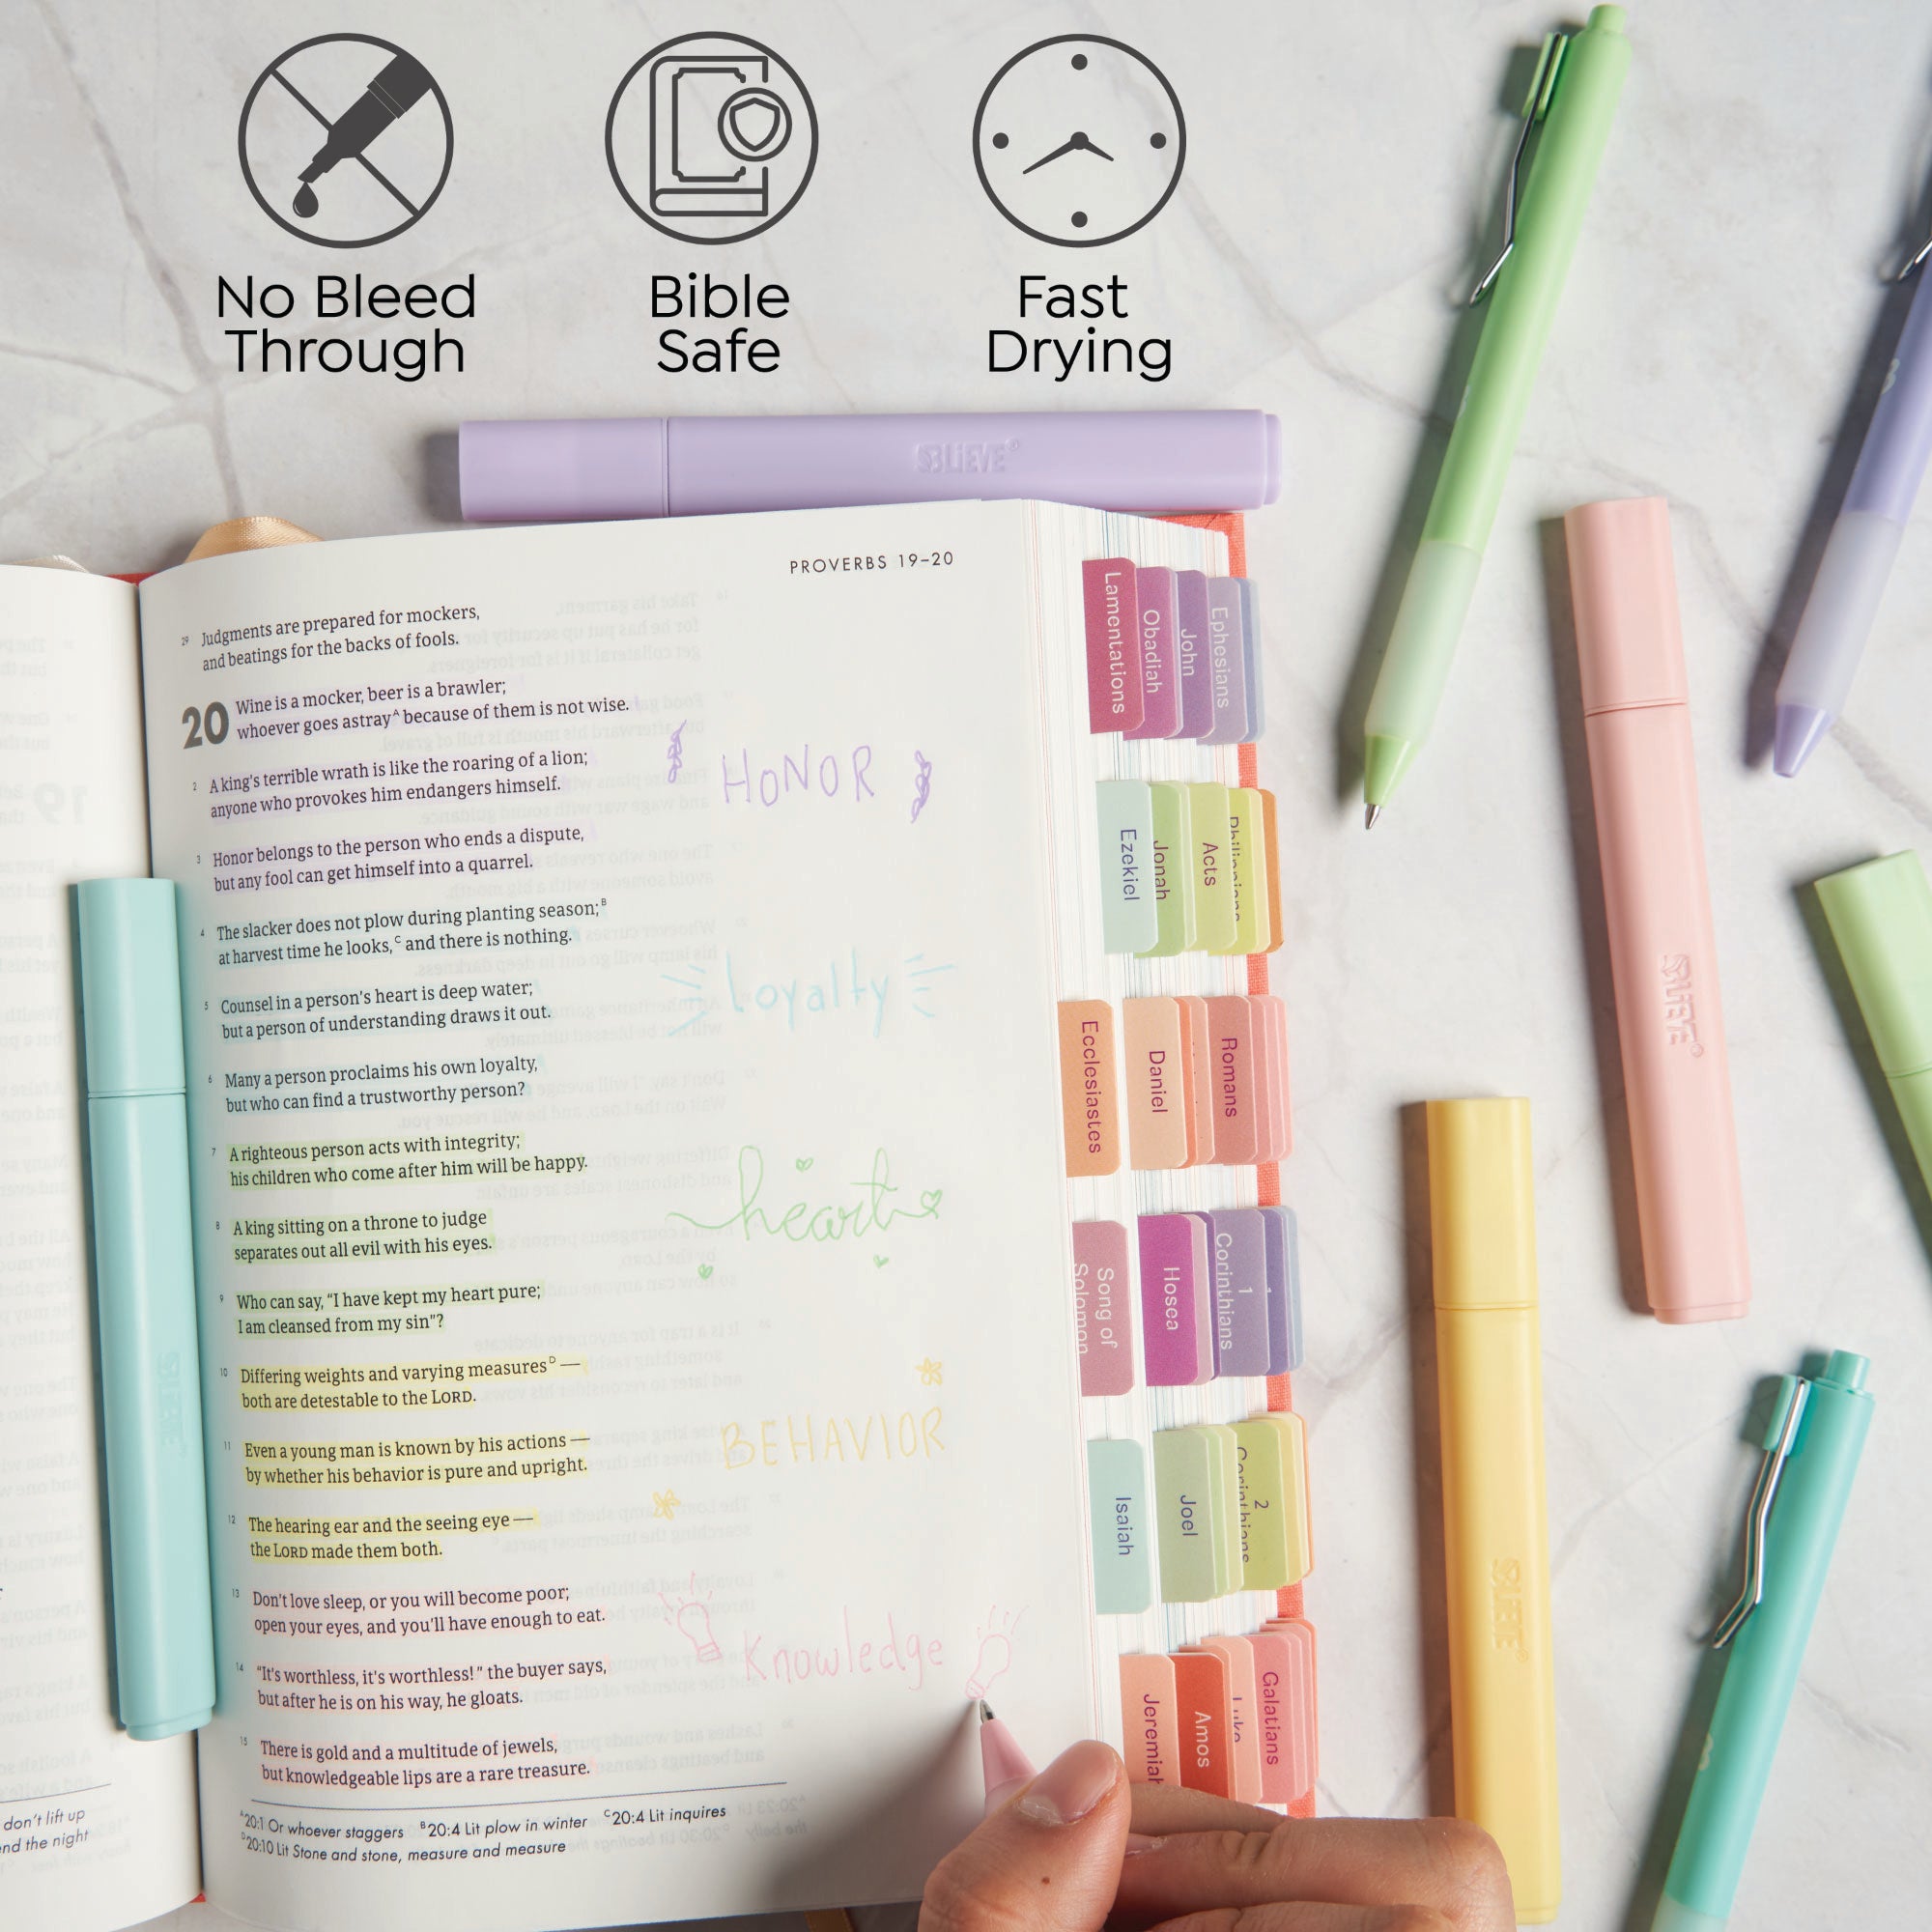 No Bleed
Through
Bible
Safe
Fast
Drying
BLIEVE
PROVERBS 19–20
29 Judgments are prepared for mockers,
and beatings for the backs of fools.
20 Wine is a mocker, beer is a brawler;
whoever goes astrayA because of them is not wise.
2 A king's terrible wrath is like the roaring of a lion;
anyone who provokes him endangers himself.
HONOR
3 Honor belongs to the person who ends a dispute,
but any fool can get himself into a quarrel.
4 The slacker does not plow during planting season;B
at harvest time he looks,C and there is nothing.
5 Counsel in a person's heart is deep water;
but a person of understanding draws it out.
Loyalty
6 Many a person proclaims his own loyalty,
but who can find a trustworthy person?
7 A righteous person acts with integrity;
his children who come after him will be happy.
heart
8 A king sitting on a throne to judge
separates out all evil with his eyes.
9 Who can say, “I have kept my heart pure;
I am cleansed from my sin”?
10 Differing weights and varying measuresD —
both are detestable to the LORD.
BEHAVIOR
11 Even a young man is known by his actions —
by whether his behavior is pure and upright.
12 The hearing ear and the seeing eye —
the LORD made them both.
13 Don't love sleep, or you will become poor;
open your eyes, and you'll have enough to eat.
Knowledge
14 “It's worthless, it's worthless!” the buyer says,
but after he is on his way, he gloats.
15 There is gold and a multitude of jewels,
but knowledgeable lips are a rare treasure.
A20:1 Or whoever staggers B20:4 Lit plow in winter C20:4 Lit inquires
D20:10 Lit Stone and stone, measure and measure
don't lift up
nd the night
Lamentations
Obadiah
John
Ephesians
Ezekiel
Jonah
Acts
Philippians
Ecclesiastes
Daniel
Romans
Song of
Solomon
Hosea
1
Corinthians
Isaiah
Joel
2
Corinthians
Jeremiah
Amos
Luke
Galatians
BLIEVE
BLIEVE
BLIEVE